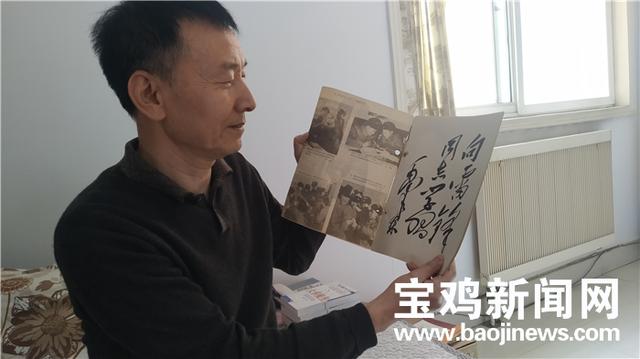 向雷锋
同志学习
毛泽东
宝鸡新闻网
www.baojinews.com